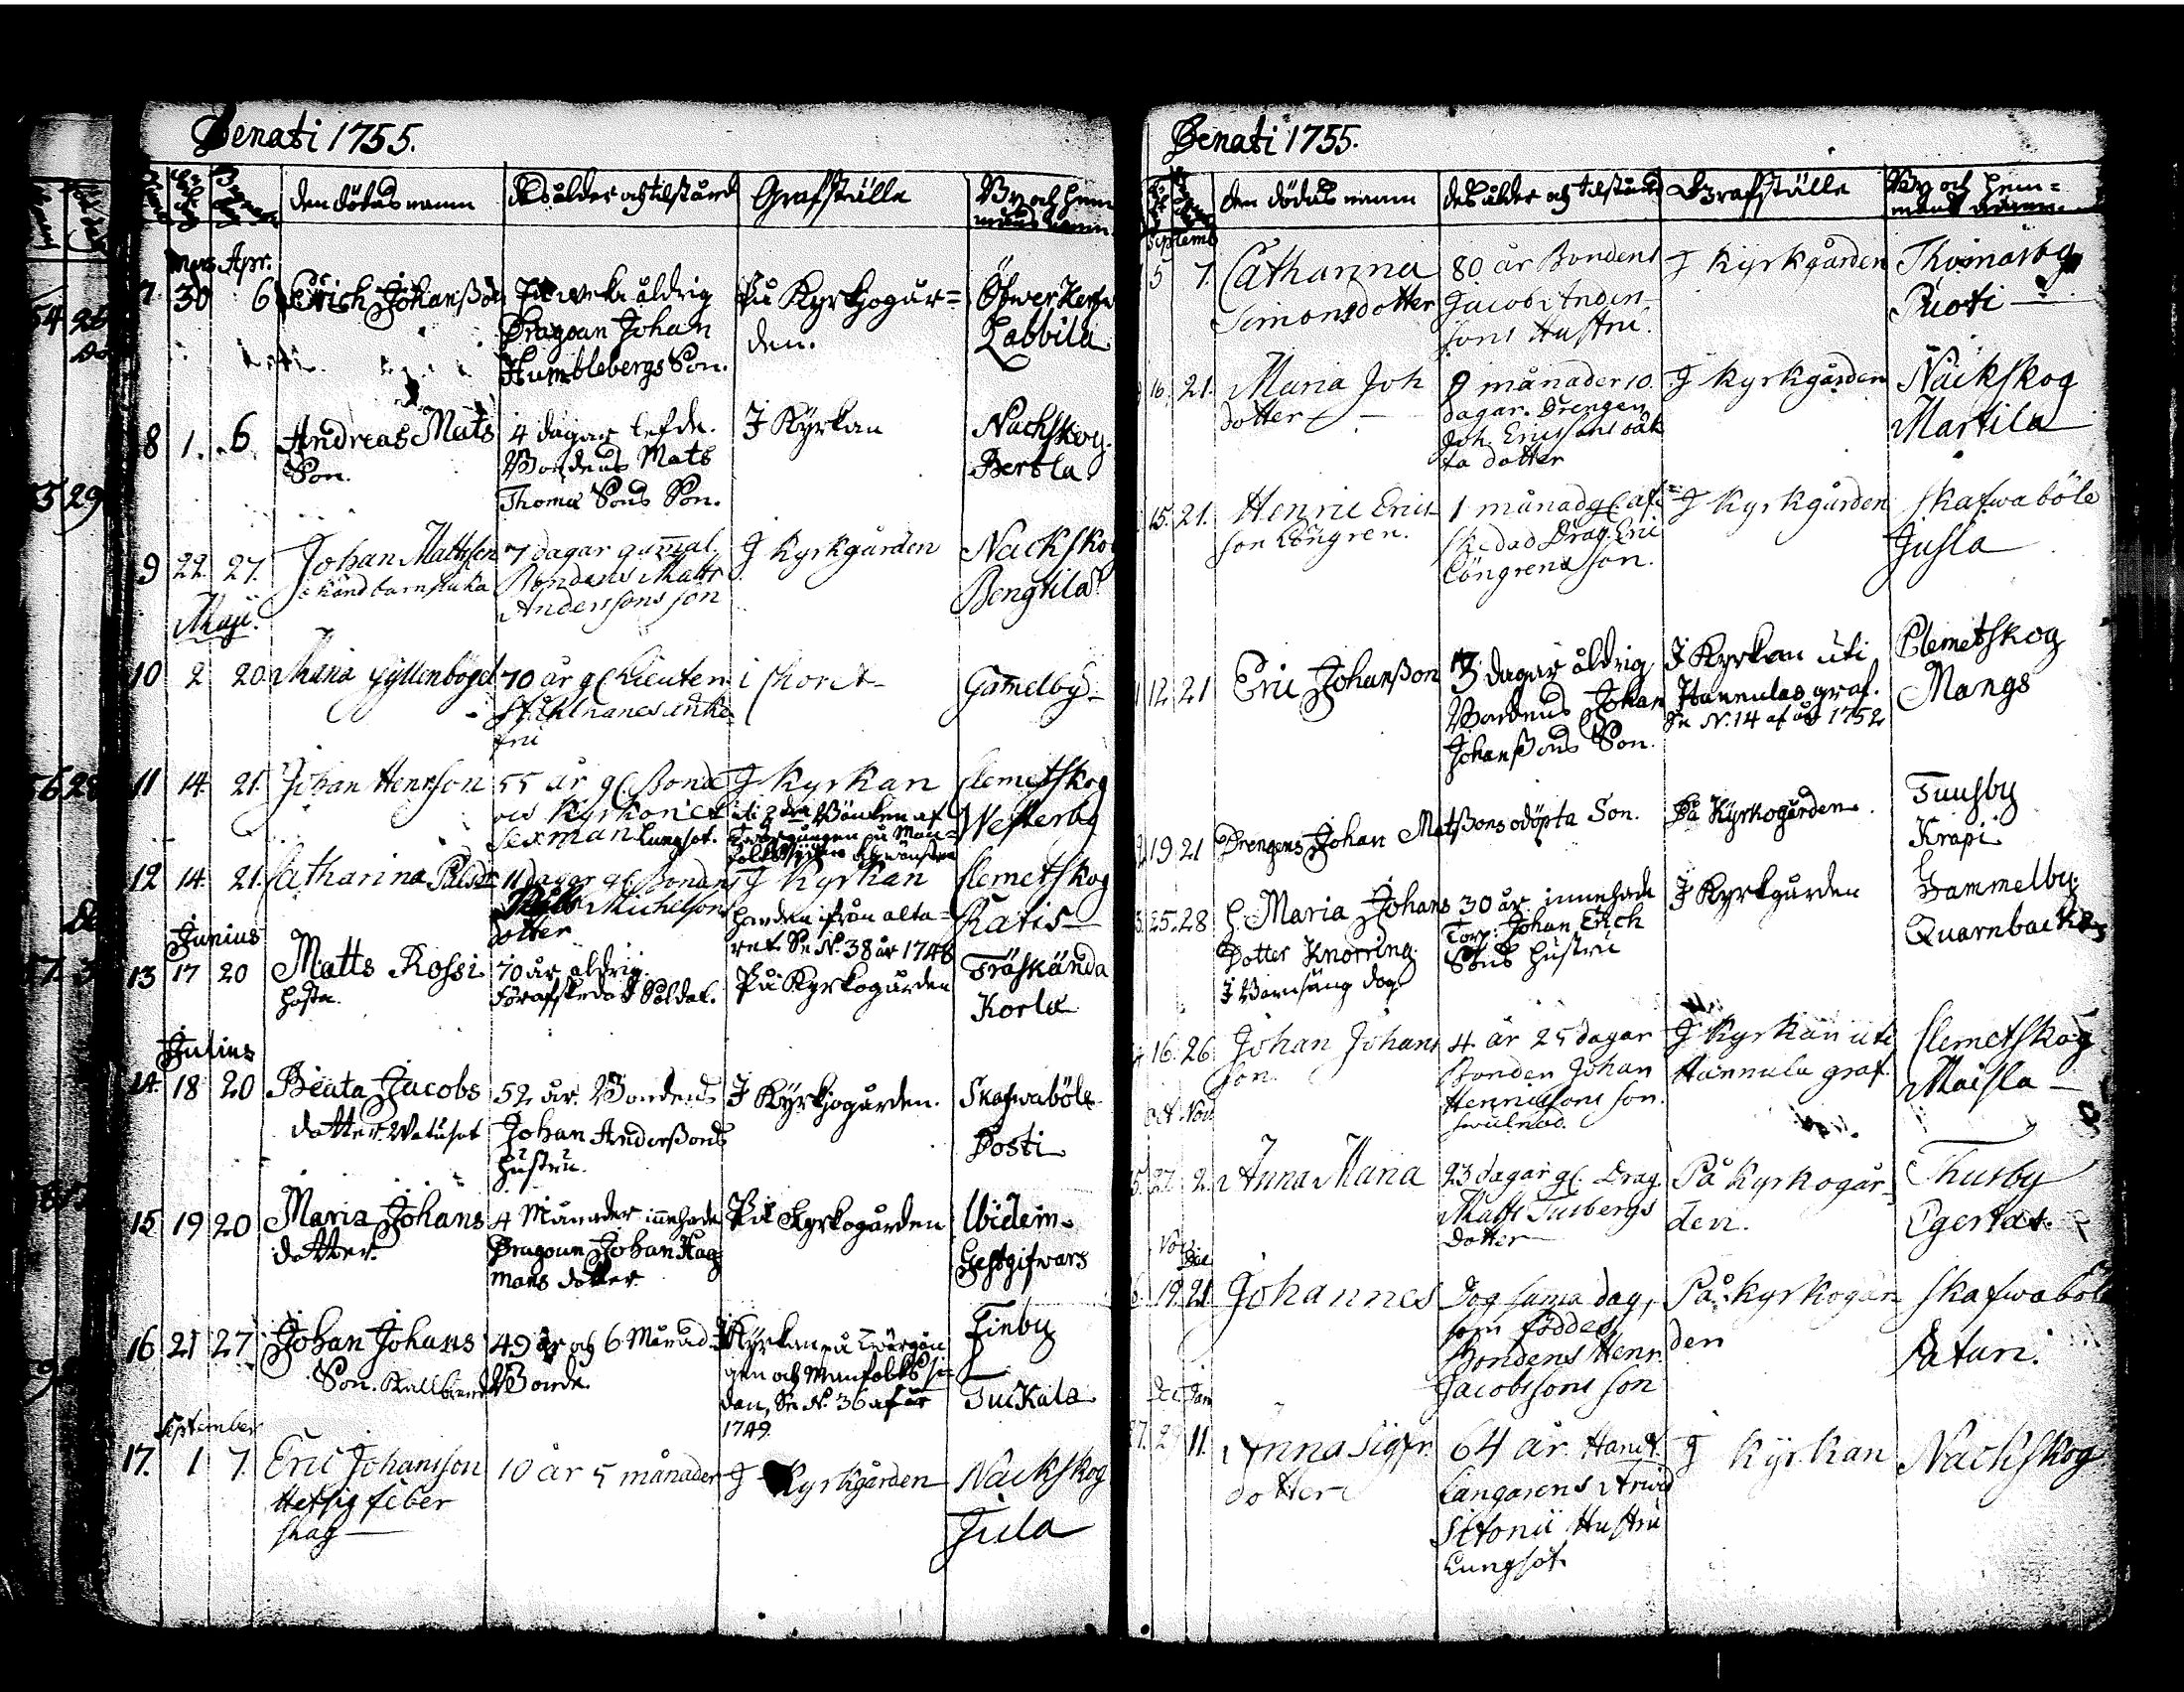 Denati 1755.
den dödas namn
des ålder och tilstånd
Grafställe
By och hem
mans namn.
Mars Apr.
7. 30 6 Erich Johanßon
weke åldrig
Dragoun Johan
Humblebergs Son.
På Kyrkjogår=
den.
Öfwer
Labbila
8 1. 6. Andreas Mats
Son.
4 dagar lefde.
Bondens Mats
Thomæ Sons Son.
J Kyrkan
Nackskog.
Bertla
9 22. 27. Johan Mattsson
7 dagar gamal
Bondens Matts
Anderssons son
J kyrkgården
Nackskog
Bengtila
Maji.
10 2 20. Maria Gyllenbögel
70 år gl. Lieuten
enke
fru
i choret
Gamelby
11 14. 21. Johan Henrsson
55 år gl. Bonde
och kyrkones
sexman Lungsot.
J kyrkan
uti 2dra Bänken af
på Man=
Clemetskog
Westerby
12 14. 21. Catharina Pålsd:
11 dagar gl. Bondens
Påls Michelsons
dotter
J kyrkan
ifrån alta=
ret. Se N. 38 år 1748
Clemetskog
Katis
Junius
13 17 20 Matts Rossi
hosta.
70 år åldrig.
förafskedad Soldat.
På Kyrkogården
Träskända
Korla
Julius
14. 18 20 Beata Jacobs
dotter. Watusot
52 år. Bondens
Johan Anderßons
hustru.
J Kyrkjogården.
Skafwaböle
Posti
15 19 20 Maria Johans
dotter.
4 Månader innehade
Dragoun Johan Hag
mans dotter
På Kyrkogården
Ibidem
Gestgifwars
16 21 27 Johan Johans
Son.
49 år och 6 Månad
Bonde.
J Kyrkan på twärgån
gen och Manfolks si-
dan, Se N. 36 af år
1749.
Finby
Tuckala
September
17. 1 7. Eric Johansson
Hetsig feber
10 år 5 månader
J Kyrkgården
Nackskog
Jula
Denati 1755.
den dödas namn
des ålder och tilstånd
Grafställe
By och hem=
mans namn
Septemb
5 7. Catharina
Simonsdotter
80 år Bondens
Jacob Anders-
sons Hustru.
J kyrkgården
Thomasby
Puoti
16. 21. Maria Joh
dotter
9 månader 10.
dagar. Drengen
Joh. Ericssons oäk
ta dotter
J kyrkgården
Nackskog
Martila
15. 21. Henric Erics
son Löngren.
1 månad gl. af=
skedad Drag. Eric
Löngrens son.
J kyrkgården
Skafwaböle
Jusla
12 21 Eric Johanßon
3 dagar åldrig
Bondens Johan
Johanßons Son.
J Kyrkan uti
Hannulas graf.
Se N. 14 af år 1752
Clemetskog
Mangs
19 21 Drengens Johan Matßons odöpta Son.
På Kyrkogården.
Tuusby
Krapi
25. 28 H. Maria Johans
Dotter Knorring.
J Barnsäng dog
30 år innehade
Torp: Johan Erich
Sons hustru
J Kyrkgården
Gammelby.
Quarnbacka
16. 26 Johan Johans
son.
4 år 25 dagar
Bonden Johan
Henricssons son.
J kyrkan uti
Hannula graf.
Clemetskog
Maisla
Oct. Nov.
27. 2. Anna Maria
23 dagar gl. Drag.
Matts Tusbergs
dotter
På kyrkogår-
den.
Thusby
Egertas.
Nov.
Dec
19. 21. Johannes
Dog samma dag,
som föddes
Bondens Henr.
Jacobssons son
På kyrkogår
den
Skafwaböle
Paturi.
Dec. Jan
17. 2 11. Anna Sigfr.
dotter
64 år. Hand.
Langarens Arwid
Sitonii Hustru
Lungsot.
J kyrkan
Nackskog